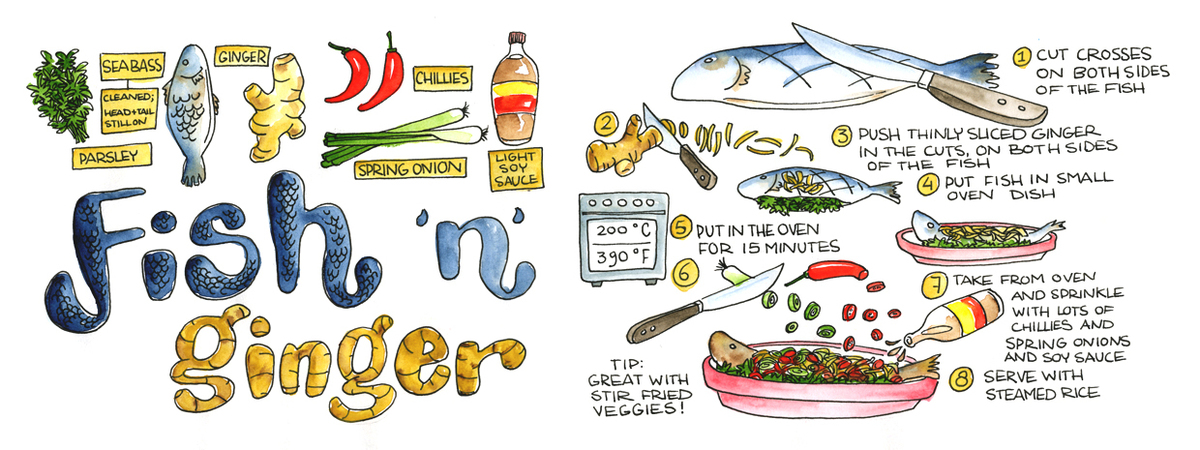 SEABASS
CLEANED;
HEAD+TAIL
STILL ON
PARSLEY
GINGER
CHILLIES
SPRING ONION
LIGHT
SOY
SAUCE
Fish 'n'
ginger
1 CUT CROSSES
ON BOTH SIDES
OF THE FISH
2
3 PUSH THINLY SLICED GINGER
IN THE CUTS, ON BOTH SIDES
OF THE FISH
4 PUT FISH IN SMALL
OVEN DISH
200 °C
390 °F
5 PUT IN THE OVEN
FOR 15 MINUTES
6
7 TAKE FROM OVEN
AND SPRINKLE
WITH LOTS OF
CHILLIES AND
SPRING ONIONS
AND SOY SAUCE
8 SERVE WITH
STEAMED RICE
TIP:
GREAT WITH
STIR FRIED
VEGGIES!